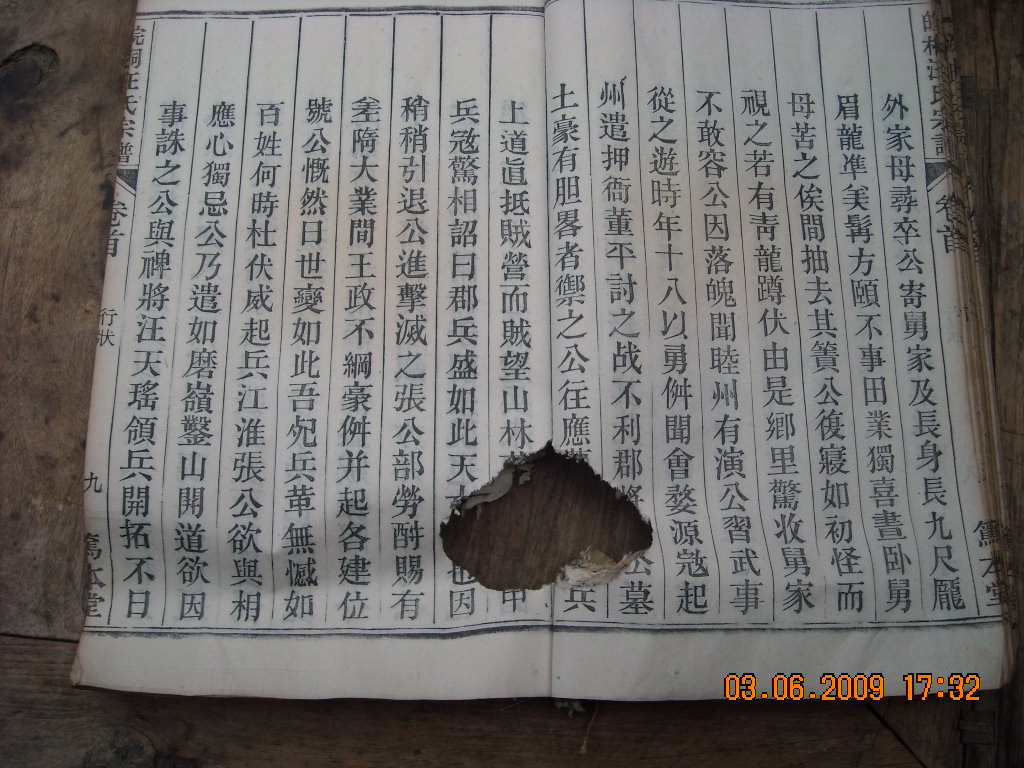 外家母尋卒公寄舅家及長身長九尺龐
眉龍準美髯方頤不事田業獨喜晝卧舅
母苦之俟間抽去其簀公復寢如初怪而
視之若有靑龍蹲伏由是鄉里驚收舅家
不敢容公因落魄聞睦州有演公習武事
從之遊時年十八以勇倂聞會婺源寇起
州遣押衙董平討之战不利郡將 公募
土豪有胆畧者禦之公往應 兵
上道眞抵賊營而賊望山林 甲
兵寇驚相詔曰郡兵盛如此天 也因
稍稍引退公進擊滅之張公部勞酧賜有
差隋大業間王政不綱豪倂并起各建位
號公慨然曰世變如此吾兇兵革無憾如
百姓何時杜伏威起兵江淮張公欲與相
應心獨忌公乃遣如磨嶺鑿山開道欲因
事誅之公與裨將汪天瑤領兵開拓不日
皖桐汪氏宗譜
卷首
行狀
九
篤本堂
卷首
篤本堂
03.06.2009 17:32